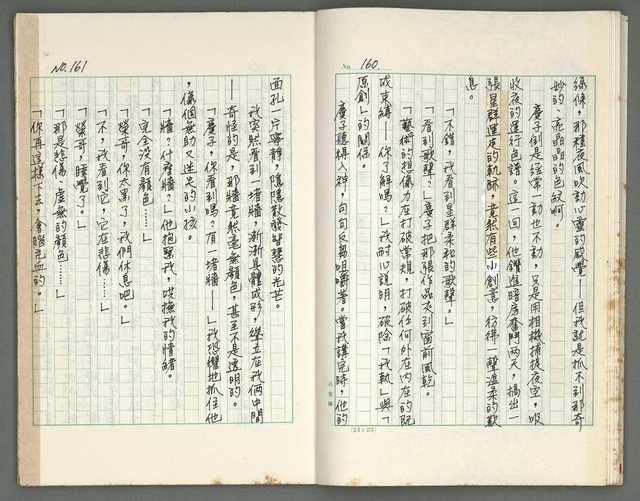 No. 160
綠條，那種夜風吹動心靈的感覺——但我就是抓不到那奇
妙的、亮晶晶的色紋啊。
慶子倒是經常一動也不動，只是用相機捕捉夜空，吸
收夜的運行色譜。這一回，他鑽進暗房奮鬥兩天，搞出一
張星群運走的軌跡，竟然有些小創意，彷彿一聲溫柔的歎
息。
「不錯，我看到星群柔和的歌聲。」
「看到歌聲？」慶子把那張作品夾到窗前風乾。
「藝術的想像力在打破常規，打破任何外在內在的既
成束縛——你了解嗎？」我耐心說明，破除「我執」與「
原創」的關係。
慶子聽得入神，句句反芻咀嚼著。當我講完時，他的
(24×25)
NO. 161
面孔一片寧靜，隱隱散發智慧的光芒。
我突然看到一堵牆，漸漸具體成形，縱立在我倆中間
——奇怪的是，那牆竟然毫無顏色，甚至不是透明的。
「慶子，你看到嗎？有一堵牆——」我恐懼地抓住他
，像個無助又迷走的小孩。
「牆？什麼牆？」他抱緊我，安撫我的情緒。
「完全沒有顏色……」
「榮哥，你太累了，我們休息吧。」
「不，我看到它，它在悲傷……」
「榮哥，睡覺了。」
「那是悲傷、虛無的顏色……」
「你再這樣下去，會腦充血的。」